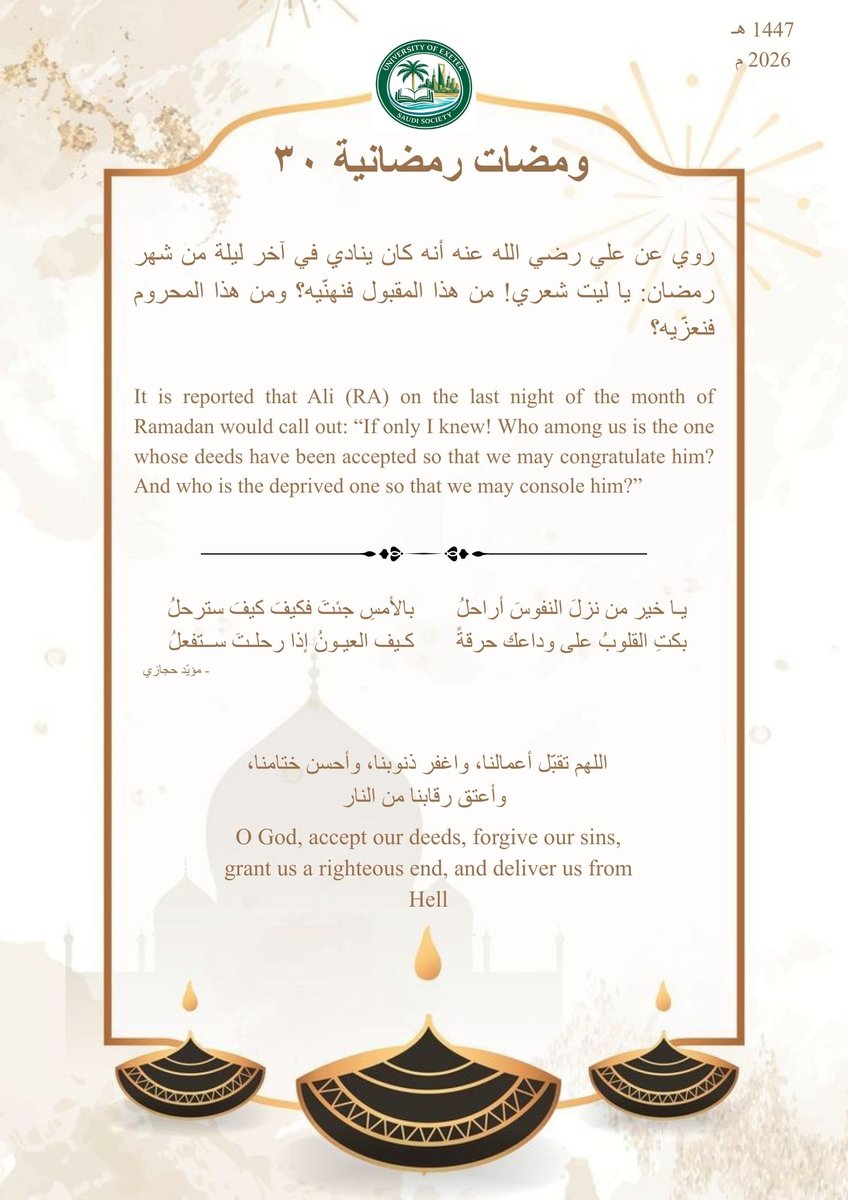 1447 هـ
2026 م
UNIVERSITY OF EXETER
SAUDI SOCIETY
ومضات رمضانية ٣٠
روي عن علي رضي الله عنه أنه كان ينادي في آخر ليلة من شهر
رمضان: يا ليت شعري! من هذا المقبول فنهنّيه؟ ومن هذا المحروم
فنعزّيه؟
It is reported that Ali (RA) on the last night of the month of
Ramadan would call out: “If only I knew! Who among us is the one
whose deeds have been accepted so that we may congratulate him?
And who is the deprived one so that we may console him?”
يـا خير من نزلَ النفوسَ أراحلُ بالأمسِ جئتَ فكيفَ كيفَ سترحلُ
بكتِ القلوبُ على وداعك حرقةً كـيف العيـونُ إذا رحلـتَ ســتفعلُ
- مؤيّد حجازي
اللهم تقبّل أعمالنا، واغفر ذنوبنا، وأحسن ختامنا،
وأعتق رقابنا من النار
O God, accept our deeds, forgive our sins,
grant us a righteous end, and deliver us from
Hell